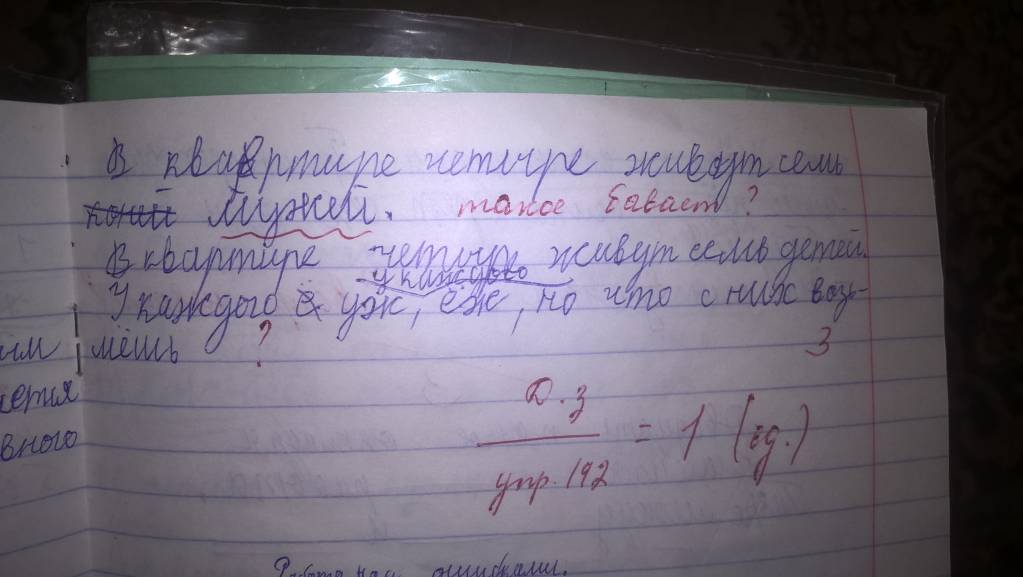 В квартире четыре живут семь
коней мужей. такое бывает?
В квартире четыре живут семь детей.
у каждого
У каждого ё уж, ёж, но что с них возь-
мёшь ? 3
ым
ается
вного
Д.з
упр. 192 = 1 (ед.)
Работа над ошибками.